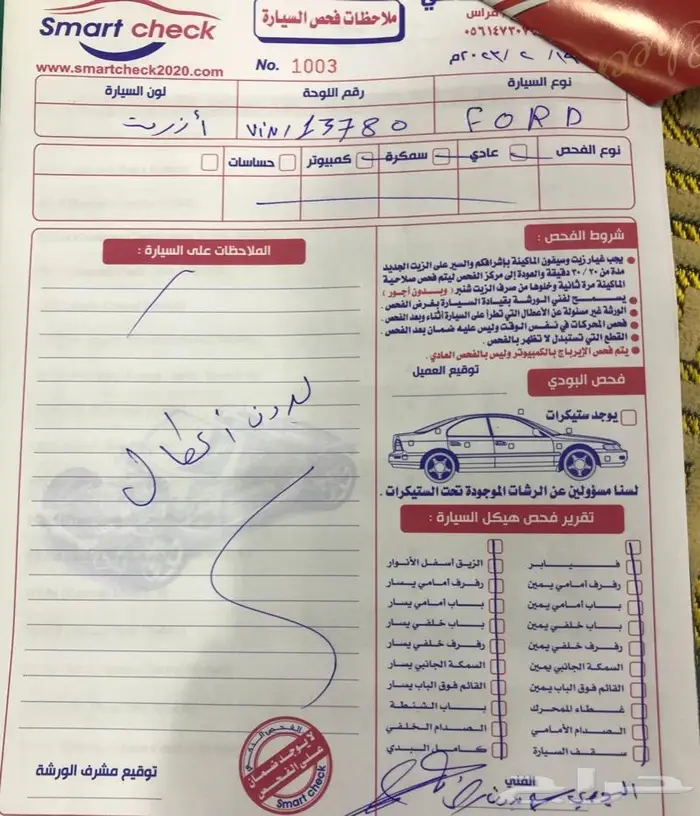 Smart check
www.smartcheck2020.com
ملاحظات فحص السيارة
No. 1003
فراس
نوع السيارة
رقم اللوحة
لون السيارة
FORD
VIN/13780
أزرق
نوع الفحص
عادي
سمكرة
كمبيوتر
حساسات
شروط الفحص :
يجب غيار زيت وسيفون الماكينة بإشرافكم والسير على الزيت الجديد
مدة من ٢٠ / ٣٠ دقيقة والعودة إلى مركز الفحص ليتم فحص صلاحية
الماكينة مرة ثانية وخلوها من صرف الزيت شنبر ( وبدون أجور )
يسمح لفني الورشة بقيادة السيارة بغرض الفحص .
الورشة غير مسئولة عن الأعطال التي تطرأ على السيارة أثناء وبعد الفحص .
فحص المحركات في نفس الوقت وليس عليه ضمان بعد الفحص .
القطع التي تستبدل لا تظهر بالفحص .
يتم فحص الإيرباج بالكمبيوتر وليس بالفحص العادي .
توقيع العميل
فحص البودي
يوجد ستيكرات
لسنا مسؤولين عن الرشات الموجودة تحت الستيكرات .
تقرير فحص هيكل السيارة :
فيابر
الزيق أسفل الأنوار
رفرف أمامي يمين
رفرف أمامي يسار
باب أمامي يمين
باب أمامي يسار
باب خلفي يمين
باب خلفي يسار
رفرف خلفي يمين
رفرف خلفي يسار
السمكة الجانبي يمين
السمكة الجانبي يسار
القائم فوق الباب يمين
القائم فوق الباب يسار
غطاء للمحرك
باب الشنطة
الصدام الأمامي
الصدام الخلفي
سقف السيارة
كامل البدي
الفني
الملاحظات على السيارة :
بدون أعطال
لا يوجد ضمان
على الفحص
Smart check
توقيع مشرف الورشة
حراج